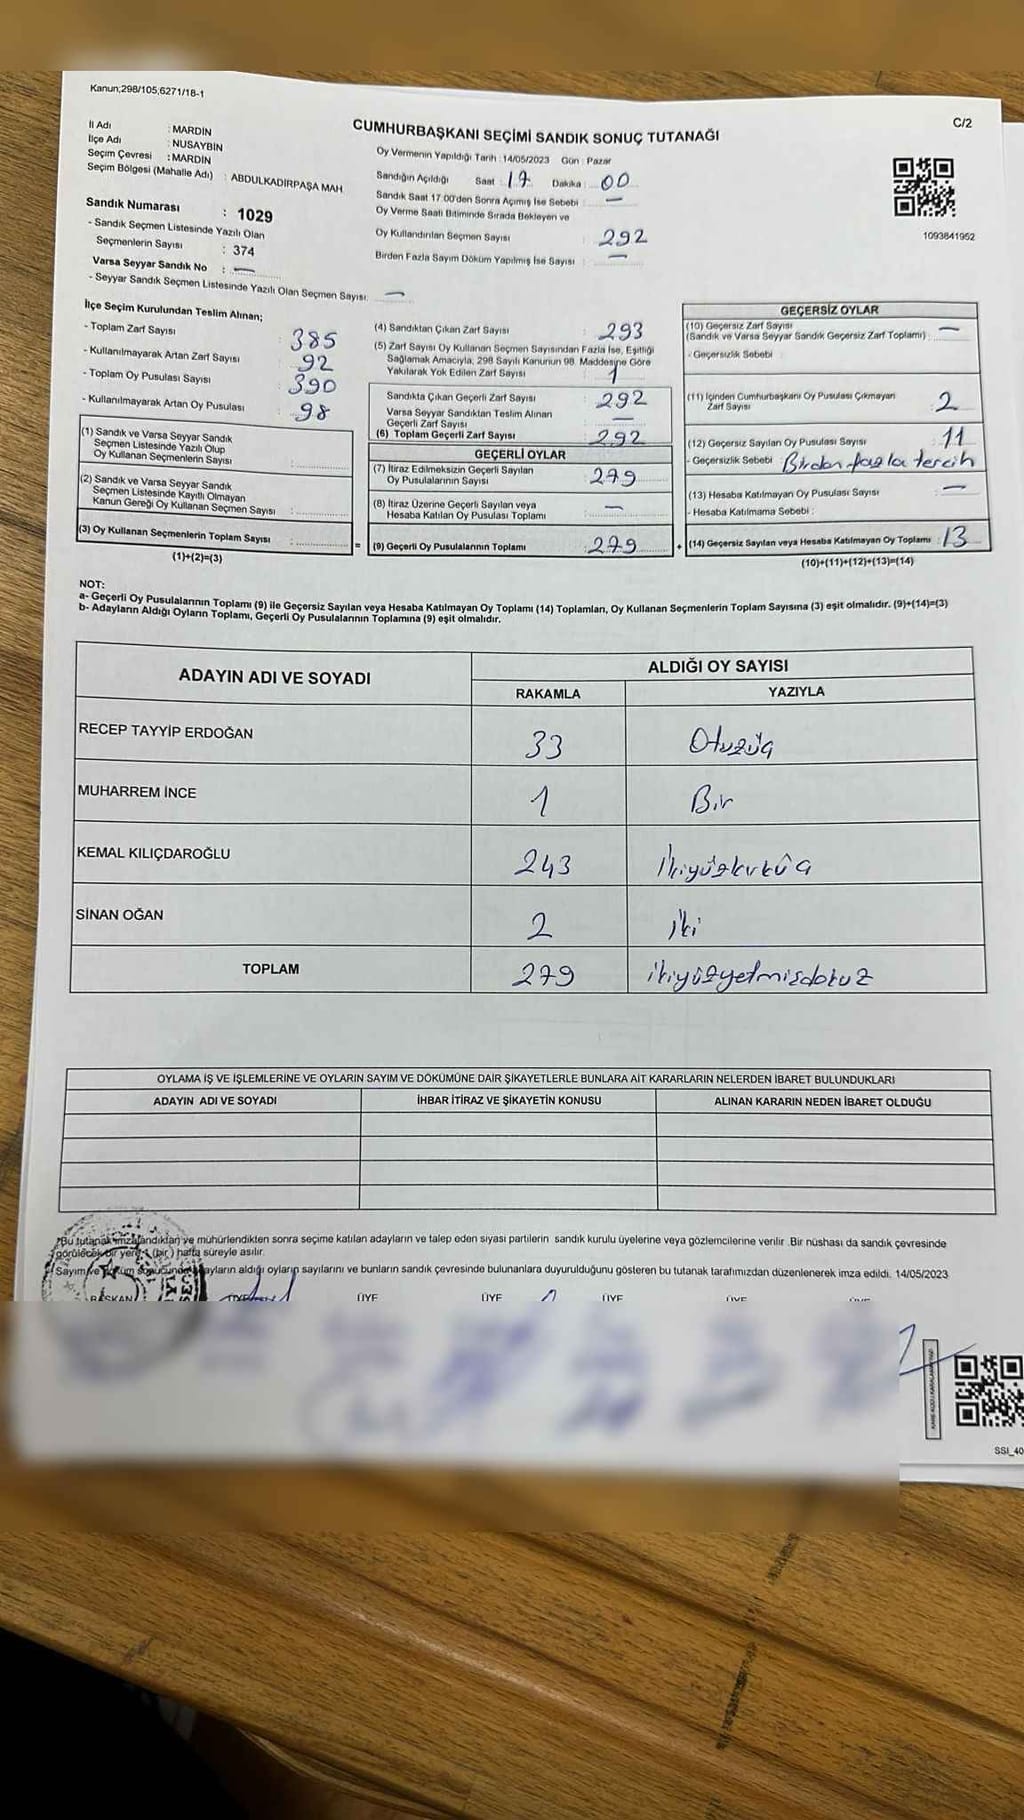 Kanun;298/105;6271/18-1
C/2
İl Adı : MARDİN
İlçe Adı : NUSAYBİN
Seçim Çevresi : MARDİN
Seçim Bölgesi (Mahalle Adı) : ABDULKADİRPAŞA MAH
Sandık Numarası : 1029
- Sandık Seçmen Listesinde Yazılı Olan
Seçmenlerin Sayısı : 374
Varsa Seyyar Sandık No : —
- Seyyar Sandık Seçmen Listesinde Yazılı Olan Seçmen Sayısı: —
CUMHURBAŞKANI SEÇİMİ SANDIK SONUÇ TUTANAĞI
Oy Vermenin Yapıldığı Tarih : 14/05/2023 Gün : Pazar
Sandığın Açıldığı Saat : 17 Dakika : 00
Sandık Saat 17:00'den Sonra Açımış İse Sebebi : —
Oy Verme Saati Bitiminde Sırada Bekleyen ve
Oy Kullandırılan Seçmen Sayısı : 292
Birden Fazla Sayım Döküm Yapılmış İse Sayısı : —
1093841952
İlçe Seçim Kurulundan Teslim Alınan;
- Toplam Zarf Sayısı : 385
- Kullanılmayarak Artan Zarf Sayısı : 92
- Toplam Oy Pusulası Sayısı : 390
- Kullanılmayarak Artan Oy Pusulası : 98
(1) Sandık ve Varsa Seyyar Sandık
Seçmen Listesinde Yazılı Olup
Oy Kullanan Seçmenlerin Sayısı :
(2) Sandık ve Varsa Seyyar Sandık
Seçmen Listesinde Kayıtlı Olmayan
Kanun Gereği Oy Kullanan Seçmen Sayısı :
(3) Oy Kullanan Seçmenlerin Toplam Sayısı :
(1)+(2)=(3)
(4) Sandıktan Çıkan Zarf Sayısı : 293
(5) Zarf Sayısı Oy Kullanan Seçmen Sayısından Fazla İse, Eşitliği
Sağlamak Amacıyla, 298 Sayılı Kanunun 98. Maddesine Göre
Yakılarak Yok Edilen Zarf Sayısı : 1
Sandıkta Çıkan Geçerli Zarf Sayısı : 292
Varsa Seyyar Sandıktan Teslim Alınan
Geçerli Zarf Sayısı : —
(6) Toplam Geçerli Zarf Sayısı : 292
GEÇERLİ OYLAR
(7) İtiraz Edilmeksizin Geçerli Sayılan
Oy Pusulalarının Sayısı : 279
(8) İtiraz Üzerine Geçerli Sayılan veya
Hesaba Katılan Oy Pusulası Toplamı : —
= (9) Geçerli Oy Pusulalarının Toplamı : 279 +
GEÇERSİZ OYLAR
(10) Geçersiz Zarf Sayısı
(Sandık ve Varsa Seyyar Sandık Geçersiz Zarf Toplamı) : —
- Geçersizlik Sebebi :
(11) İçinden Cumhurbaşkanı Oy Pusulası Çıkmayan
Zarf Sayısı : 2
(12) Geçersiz Sayılan Oy Pusulası Sayısı : 11
- Geçersizlik Sebebi : Birden fazla tercih
(13) Hesaba Katılmayan Oy Pusulası Sayısı : —
- Hesaba Katılmama Sebebi :
(14) Geçersiz Sayılan veya Hesaba Katılmayan Oy Toplamı : 13
(10)+(11)+(12)+(13)=(14)
NOT:
a- Geçerli Oy Pusulalarının Toplamı (9) ile Geçersiz Sayılan veya Hesaba Katılmayan Oy Toplamı (14) Toplamları, Oy Kullanan Seçmenlerin Toplam Sayısına (3) eşit olmalıdır. (9)+(14)=(3)
b- Adayların Aldığı Oyların Toplamı, Geçerli Oy Pusulalarının Toplamına (9) eşit olmalıdır.
ADAYIN ADI VE SOYADI
ALDIĞI OY SAYISI
RAKAMLA YAZIYLA
RECEP TAYYİP ERDOĞAN 33 Otuzüç
MUHARREM İNCE 1 Bir
KEMAL KILIÇDAROĞLU 243 İkiyüzkırküç
SİNAN OĞAN 2 iki
TOPLAM 279 ikiyüzyetmisdokuz
OYLAMA İŞ VE İŞLEMLERİNE VE OYLARIN SAYIM VE DÖKÜMÜNE DAİR ŞİKAYETLERLE BUNLARA AİT KARARLARIN NELERDEN İBARET BULUNDUKLARI
ADAYIN ADI VE SOYADI İHBAR İTİRAZ VE ŞİKAYETİN KONUSU ALINAN KARARIN NEDEN İBARET OLDUĞU
*Bu tutanak imzalandıktan ve mühürlendikten sonra seçime katılan adayların ve talep eden siyasi partilerin sandık kurulu üyelerine veya gözlemcilerine verilir .Bir nüshası da sandık çevresinde
görülecek bir yere 1 (bir) hafta süreyle asılır.
Sayım ve döküm sonucunda adayların aldığı oyların sayılarını ve bunların sandık çevresinde bulunanlara duyurulduğunu gösteren bu tutanak tarafımızdan düzenlenerek imza edildi. 14/05/2023
BAŞKAN ÜYE ÜYE ÜYE ÜYE ÜYE
SSI_40